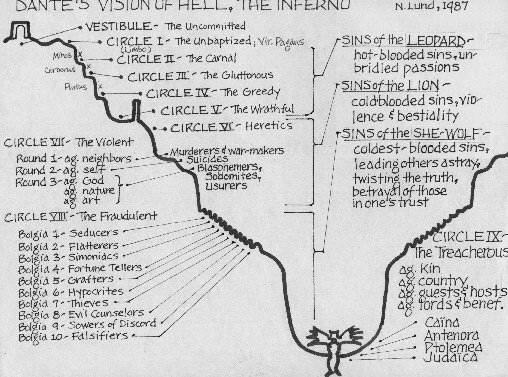 DANTE'S VISION OF HELL, THE INFERNO
N. Lund, 1987
VESTIBULE - The Uncommitted
CIRCLE I - The Unbaptized; Vir. Pagans
(Limbo)
Minos
CIRCLE II - The Carnal
Cerberus
CIRCLE III - The Gluttonous
Plutus
CIRCLE IV - The Greedy
CIRCLE V - The Wrathful
CIRCLE VI - Heretics
SINS of the LEOPARD -
hot-blooded sins, un-
bridled passions
SINS of the LION -
coldblooded sins, vio-
lence & bestiality
SINS of the SHE-WOLF -
coldest-blooded sins,
leading others astray,
twisting the truth,
betrayal of those
in one's trust
CIRCLE VII - The Violent
Round 1 - ag. neighbors
Round 2 - ag. self
Round 3 - ag. God
ag. nature
ag. art
Murderers & war-makers
Suicides
Blasphemers,
Sodomites,
Usurers
CIRCLE VIII - The Fraudulent
Bolgia 1 - Seducers
Bolgia 2 - Flatterers
Bolgia 3 - Simoniacs
Bolgia 4 - Fortune Tellers
Bolgia 5 - Grafters
Bolgia 6 - Hypocrites
Bolgia 7 - Thieves
Bolgia 8 - Evil Counselors
Bolgia 9 - Sowers of Discord
Bolgia 10 - Falsifiers
CIRCLE IX -
The Treacherous
ag. Kin
ag. country
ag. guests & hosts
ag. lords & benef.
Caina
Antenora
Ptolemea
Judaica